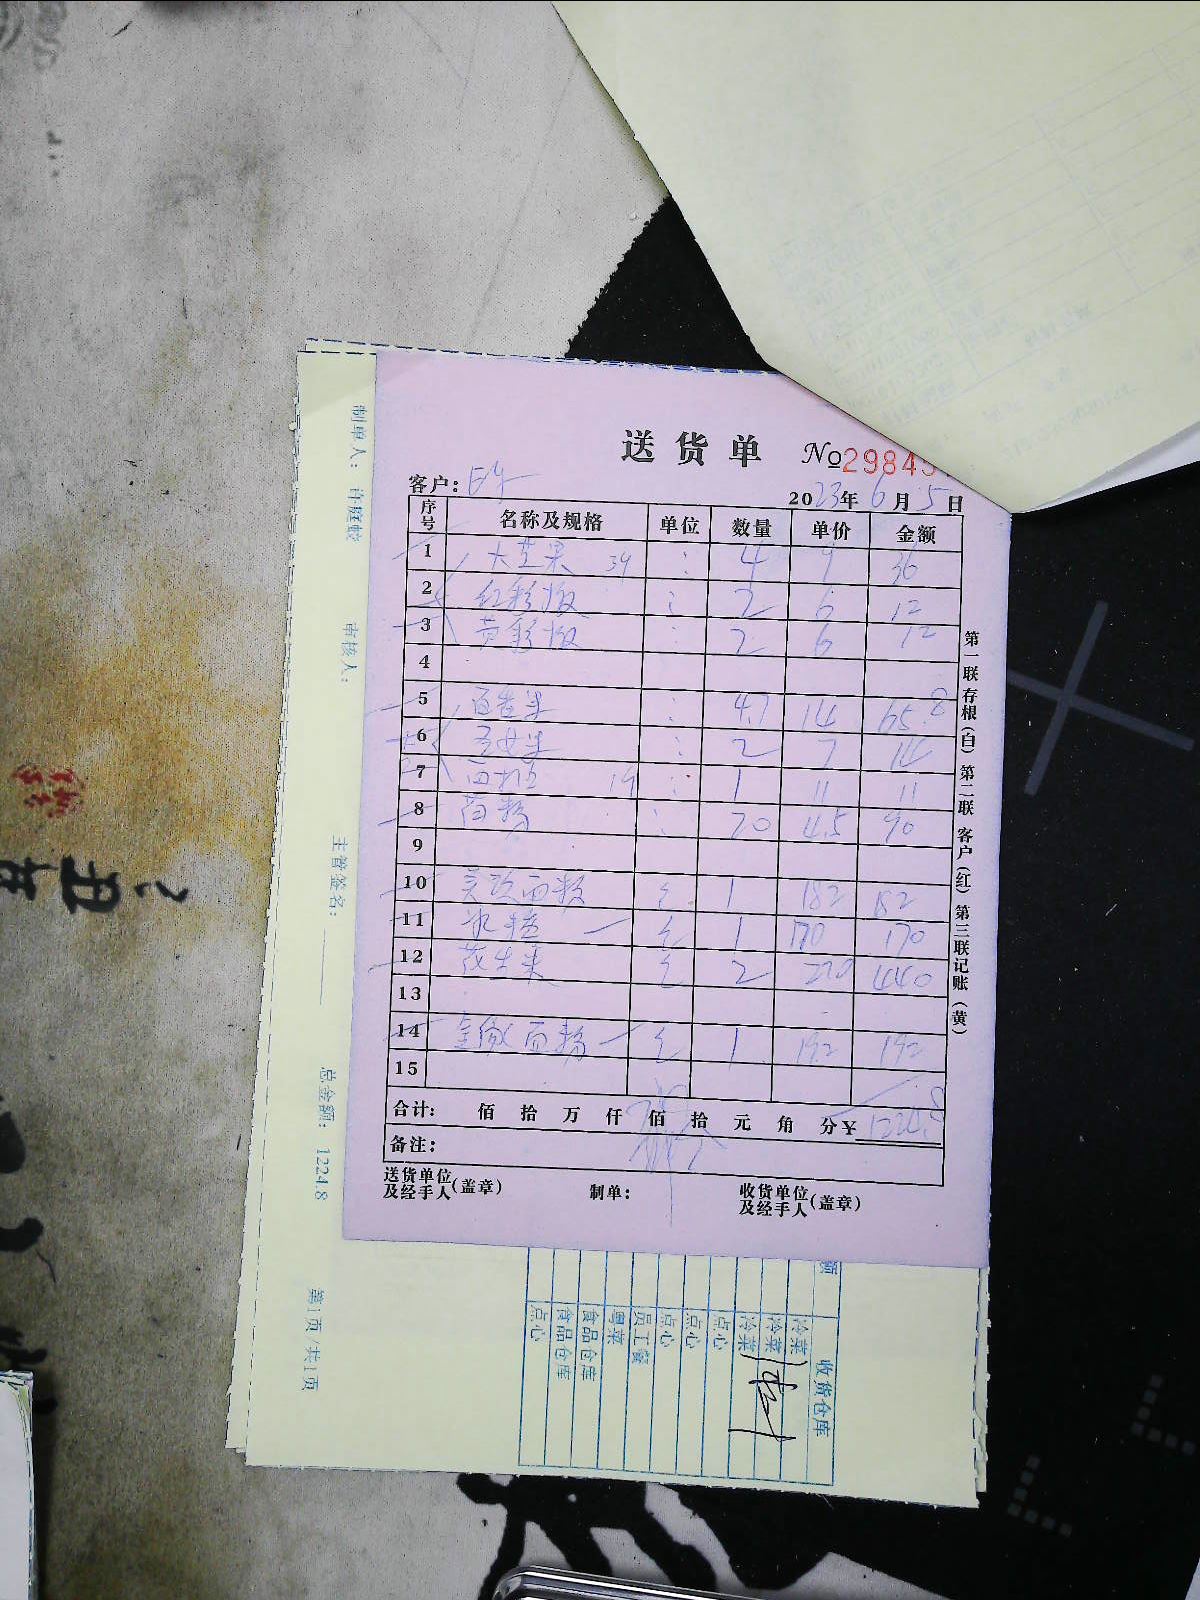 送货单 №29845
客户:
2023年6月5日
序号 名称及规格 单位 数量 单价 金额
1 大芒果 斤 4 9 36
2 红彩椒 斤 2 6 12
3 黄彩椒 斤 2 6 12
4
5 百香果 斤 4.7 14 65.8
6 斤 2 7 14
7 斤 1 11 11
8 斤 20 4.5 90
9
10 面粉 包 1 182 182
11 包 1 170 170
12 花生米 包 2 220 440
13
14 金像面粉 包 1 192 192
15
合计: 佰 拾 万 仟 佰 拾 元 角 分 ¥ 1224.8
备注:
送货单位及经手人(盖章) 制单: 收货单位及经手人(盖章)
第一联存根(白) 第二联 客户(红) 第三联记账(黄)
制单人: 许庭蛟 审核人: 主管签名: 总金额: 1224.8 第1页/共1页
额
收货仓库
冷菜
冷菜
冷菜
点心
点心
点心
员工餐
粤菜
食品仓库
食品仓库
点心